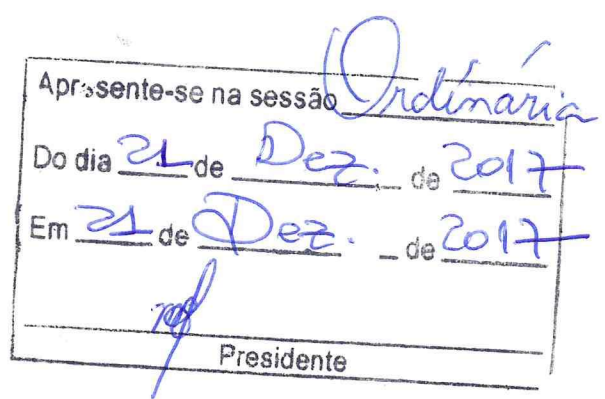 Apresente-se na sessão Ordinária
Do dia 21 de Dez. de 2017
Em 21 de Dez. de 2017
Presidente